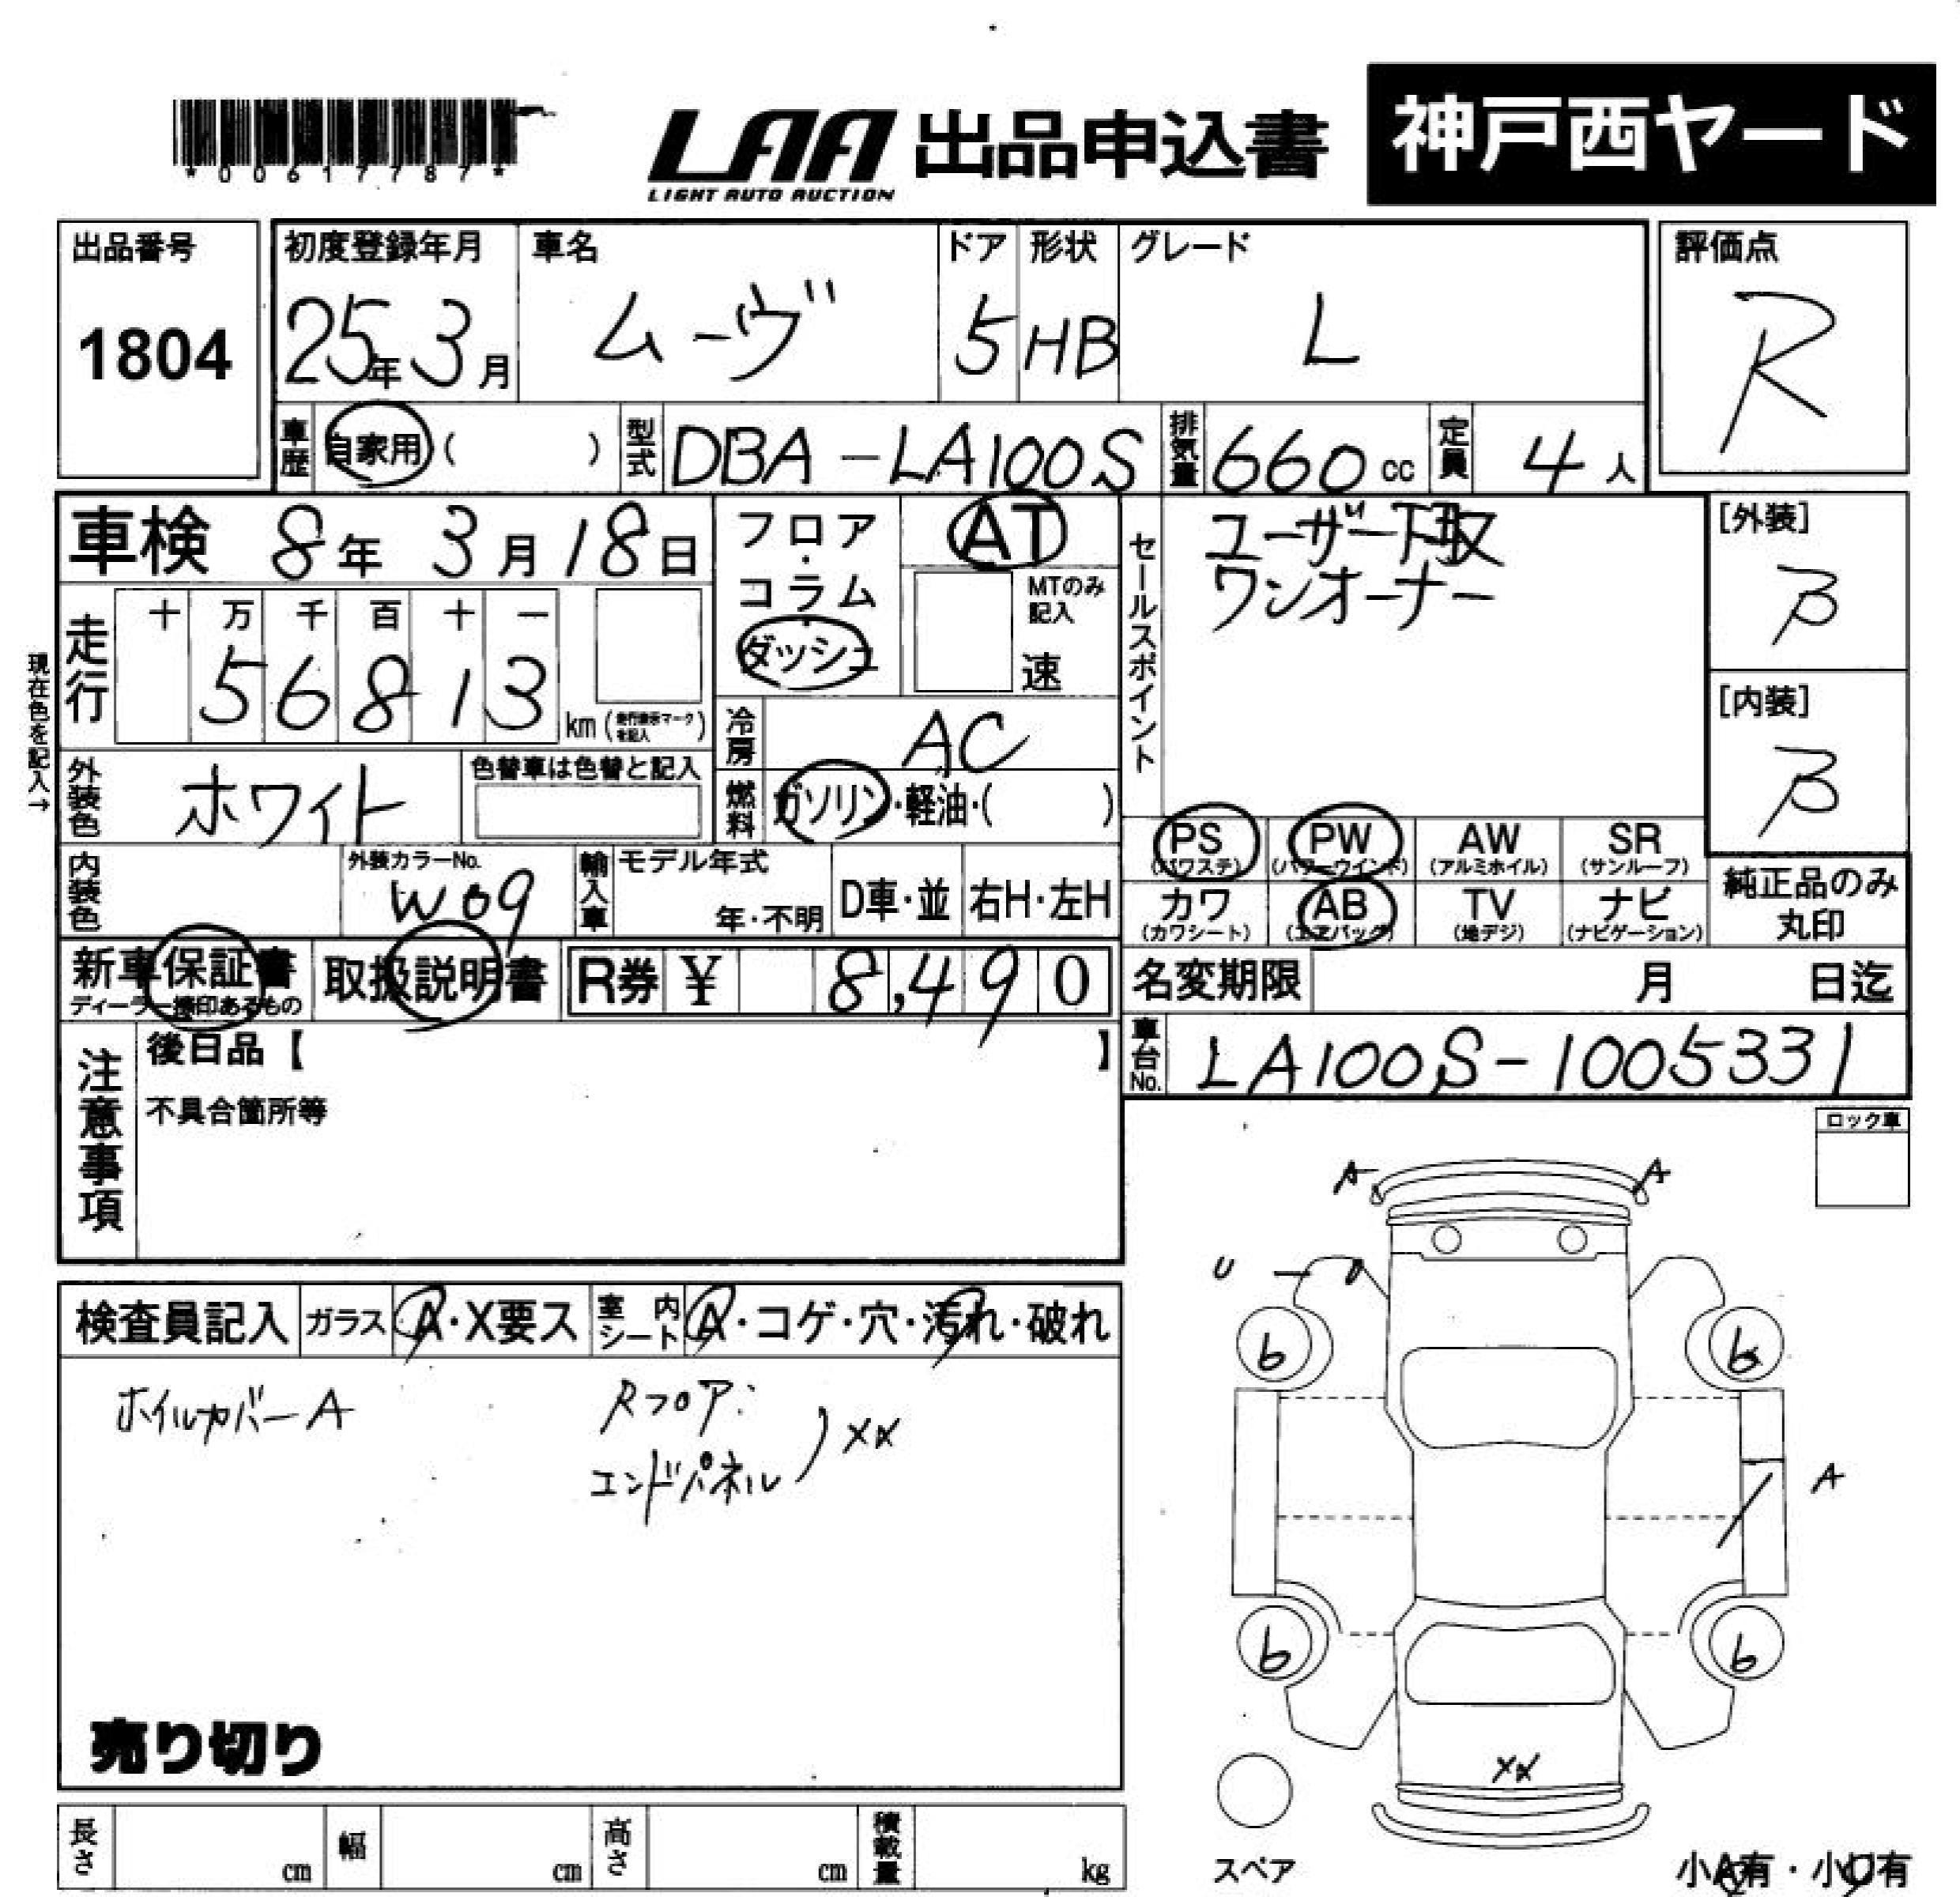 *00617787*
LAA 出品申込書 神戸西ヤード
LIGHT AUTO AUCTION
出品番号 1804
初度登録年月 25年 3月
車名 ムーヴ
ドア 5
形状 HB
グレード L
評価点 R
車歴 自家用 ( )
型式 DBA-LA100S
排気量 660 cc
定員 4 人
車検 8年 3月 18日
フロア・コラム・ダッシュ
AT
MTのみ記入
速
セールスポイント
ユーザー下取
ワンオーナー
[外装] B
[内装] B
現在色を記入→
走行 十 万 千 百 十 一
5 6 8 1 3 km (走行表示マークを記入)
冷房 AC
燃料 ガソリン・軽油・( )
外装色 ホワイト
色替車は色替と記入
内装色
外装カラーNo. W09
輸入車 モデル年式 年・不明
D車・並 右H・左H
PS (パワステ)
PW (パワーウインド)
AW (アルミホイル)
SR (サンルーフ)
カワ (カワシート)
AB (エアバッグ)
TV (地デジ)
ナビ (ナビゲーション)
純正品のみ丸印
新車保証書
ディーラー捺印あるもの
取扱説明書
R券 ¥ 8,490
名変期限 月 日迄
車台No. LA100S-1005331
注意事項
後日品【 】
不具合箇所等
ロック車
検査員記入 ガラス A・X要ス 室内シート A・コゲ・穴・汚れ・破れ
ホイルカバーA
Rフロア:
エンドパネル ) XX
売り切り
A A
U - U
6 6
A
6 6
XX
スペア
小A有・小U有
長さ cm 幅 cm 高さ cm 積載量 kg